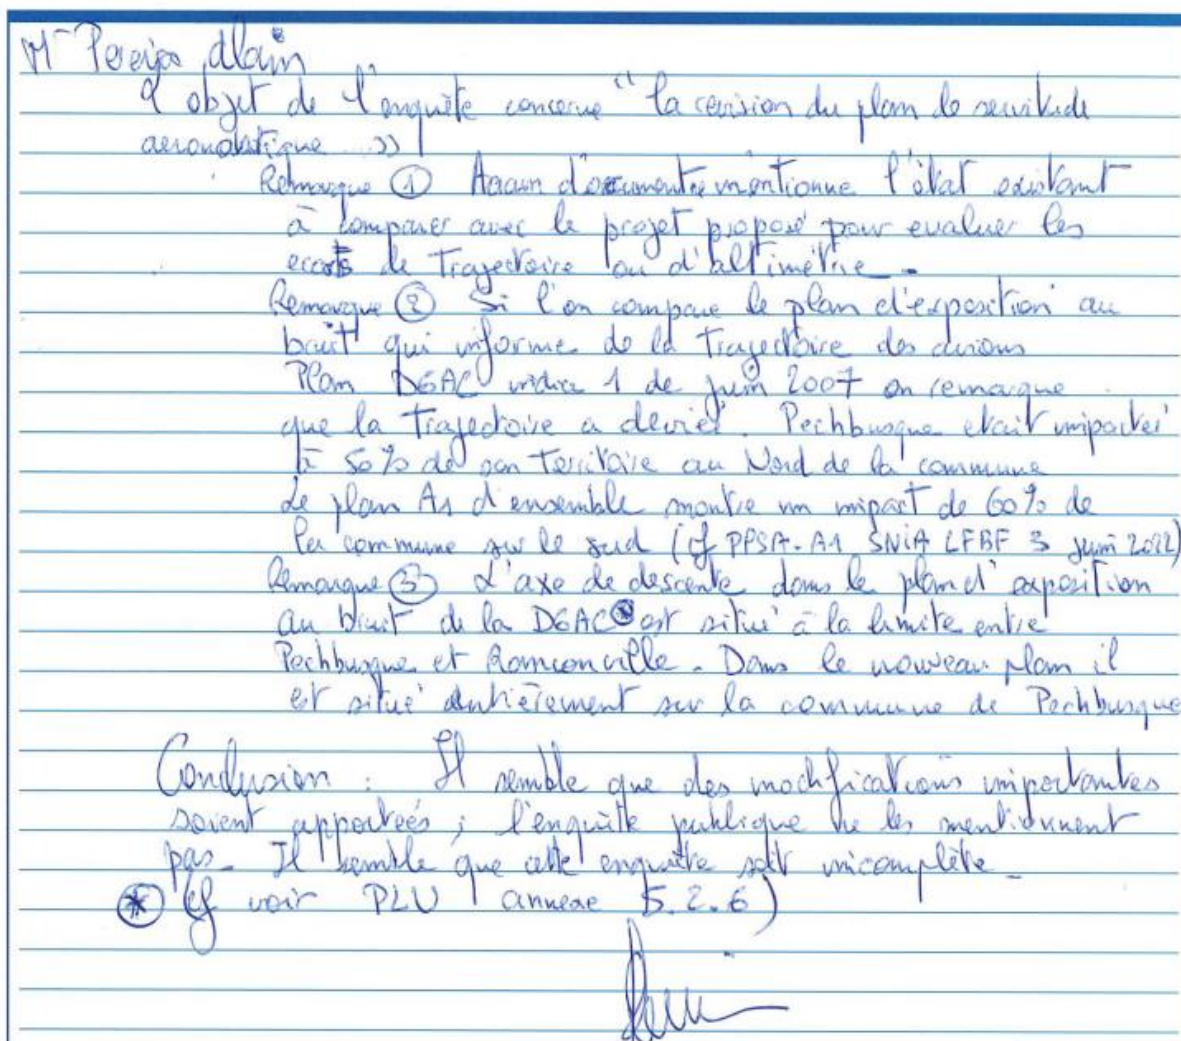 Mr Pereira Alain
L'objet de l'enquête concerne "la révision du plan de servitude
aeronautique ....»
Remarque ① Aucun document ne mentionne l'état existant
à comparer avec le projet proposé pour evaluer les
ecarts de Trajectoire ou d'altimétrie.
Remarque ② Si l'on compare le plan d'exposition au
bruit qui informe de la Trajectoire des avions
Plan DGAC indice 1 de juin 2007 on remarque
que la Trajectoire a deviée. Pechbusque etait impactée
à 50% de son Territoire au Nord de la commune
Le plan A1 d'ensemble montre un impact de 60% de
la commune sur le sud (cf PPSA-A1 SNIA LFBF 3 juin 2022)
Remarque ③ L'axe de descente dans le plan d'exposition
au bruit de la DGAC * est situé à la limite entre
Pechbusque et Ramonville. Dans le nouveau plan il
est situé entièrement sur la commune de Pechbusque
Conclusion : Il semble que des modifications importantes
soient apportées ; l'enquête publique ne les mentionnent
pas. Il semble que cette enquête soit incomplète.
* (cf voir PLU annexe 5.2.6)